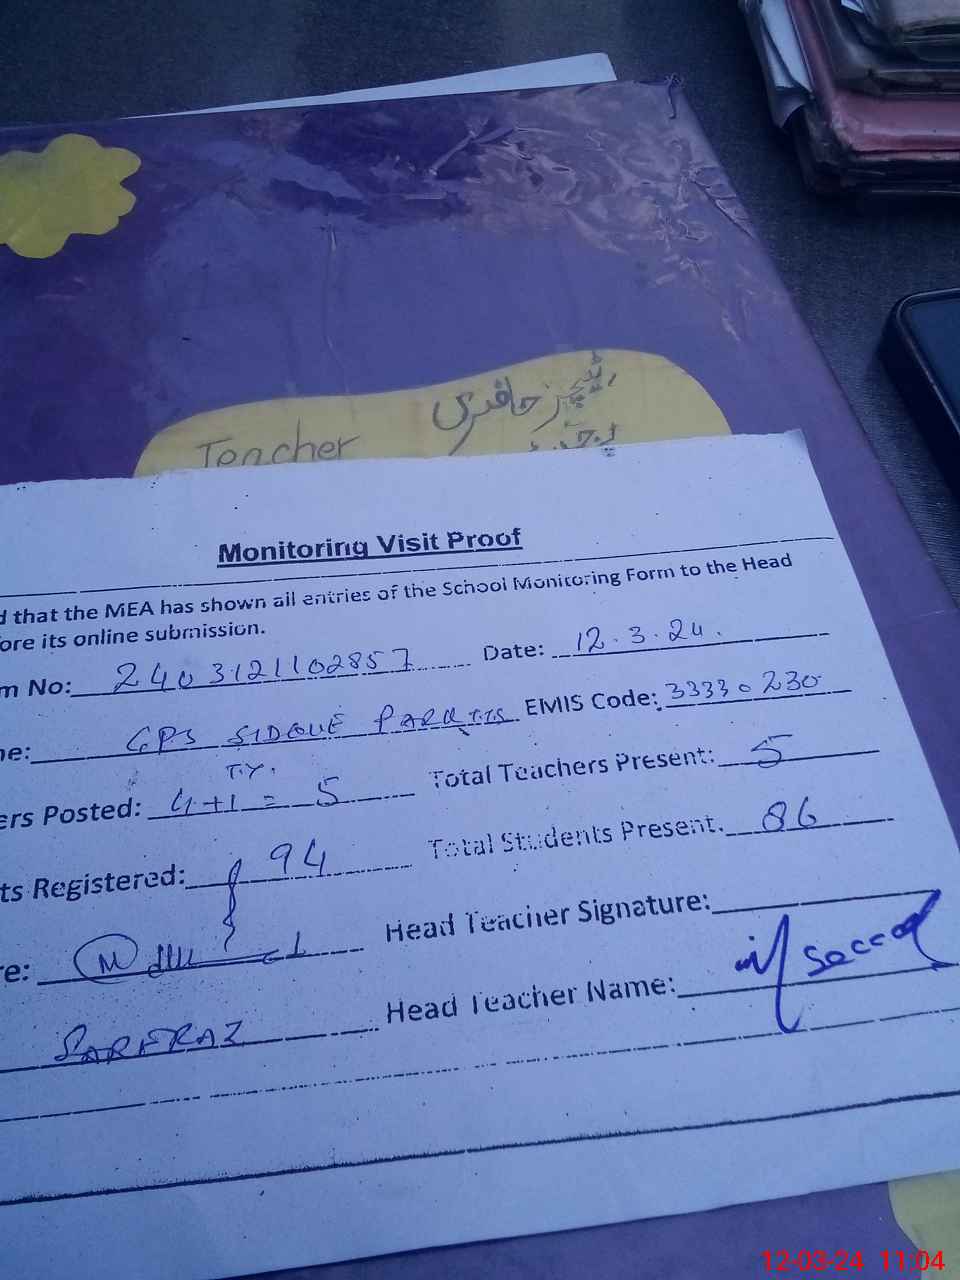 Teacher
ٹیچرز حاضری
Monitoring Visit Proof
d that the MEA has shown all entries of the School Monitoring Form to the Head
ore its online submission.
m No: 2403121102857 Date: 12.3.24.
ne: GPS SIDQUE EMIS Code: 33330230
T.Y.
ers Posted: 4+1 = 5 Total Teachers Present: 5
ts Registered: 94 Total Students Present. 86
re: Head Teacher Signature:
SARFRAZ Head Teacher Name: Saeed
12-03-24 11:04